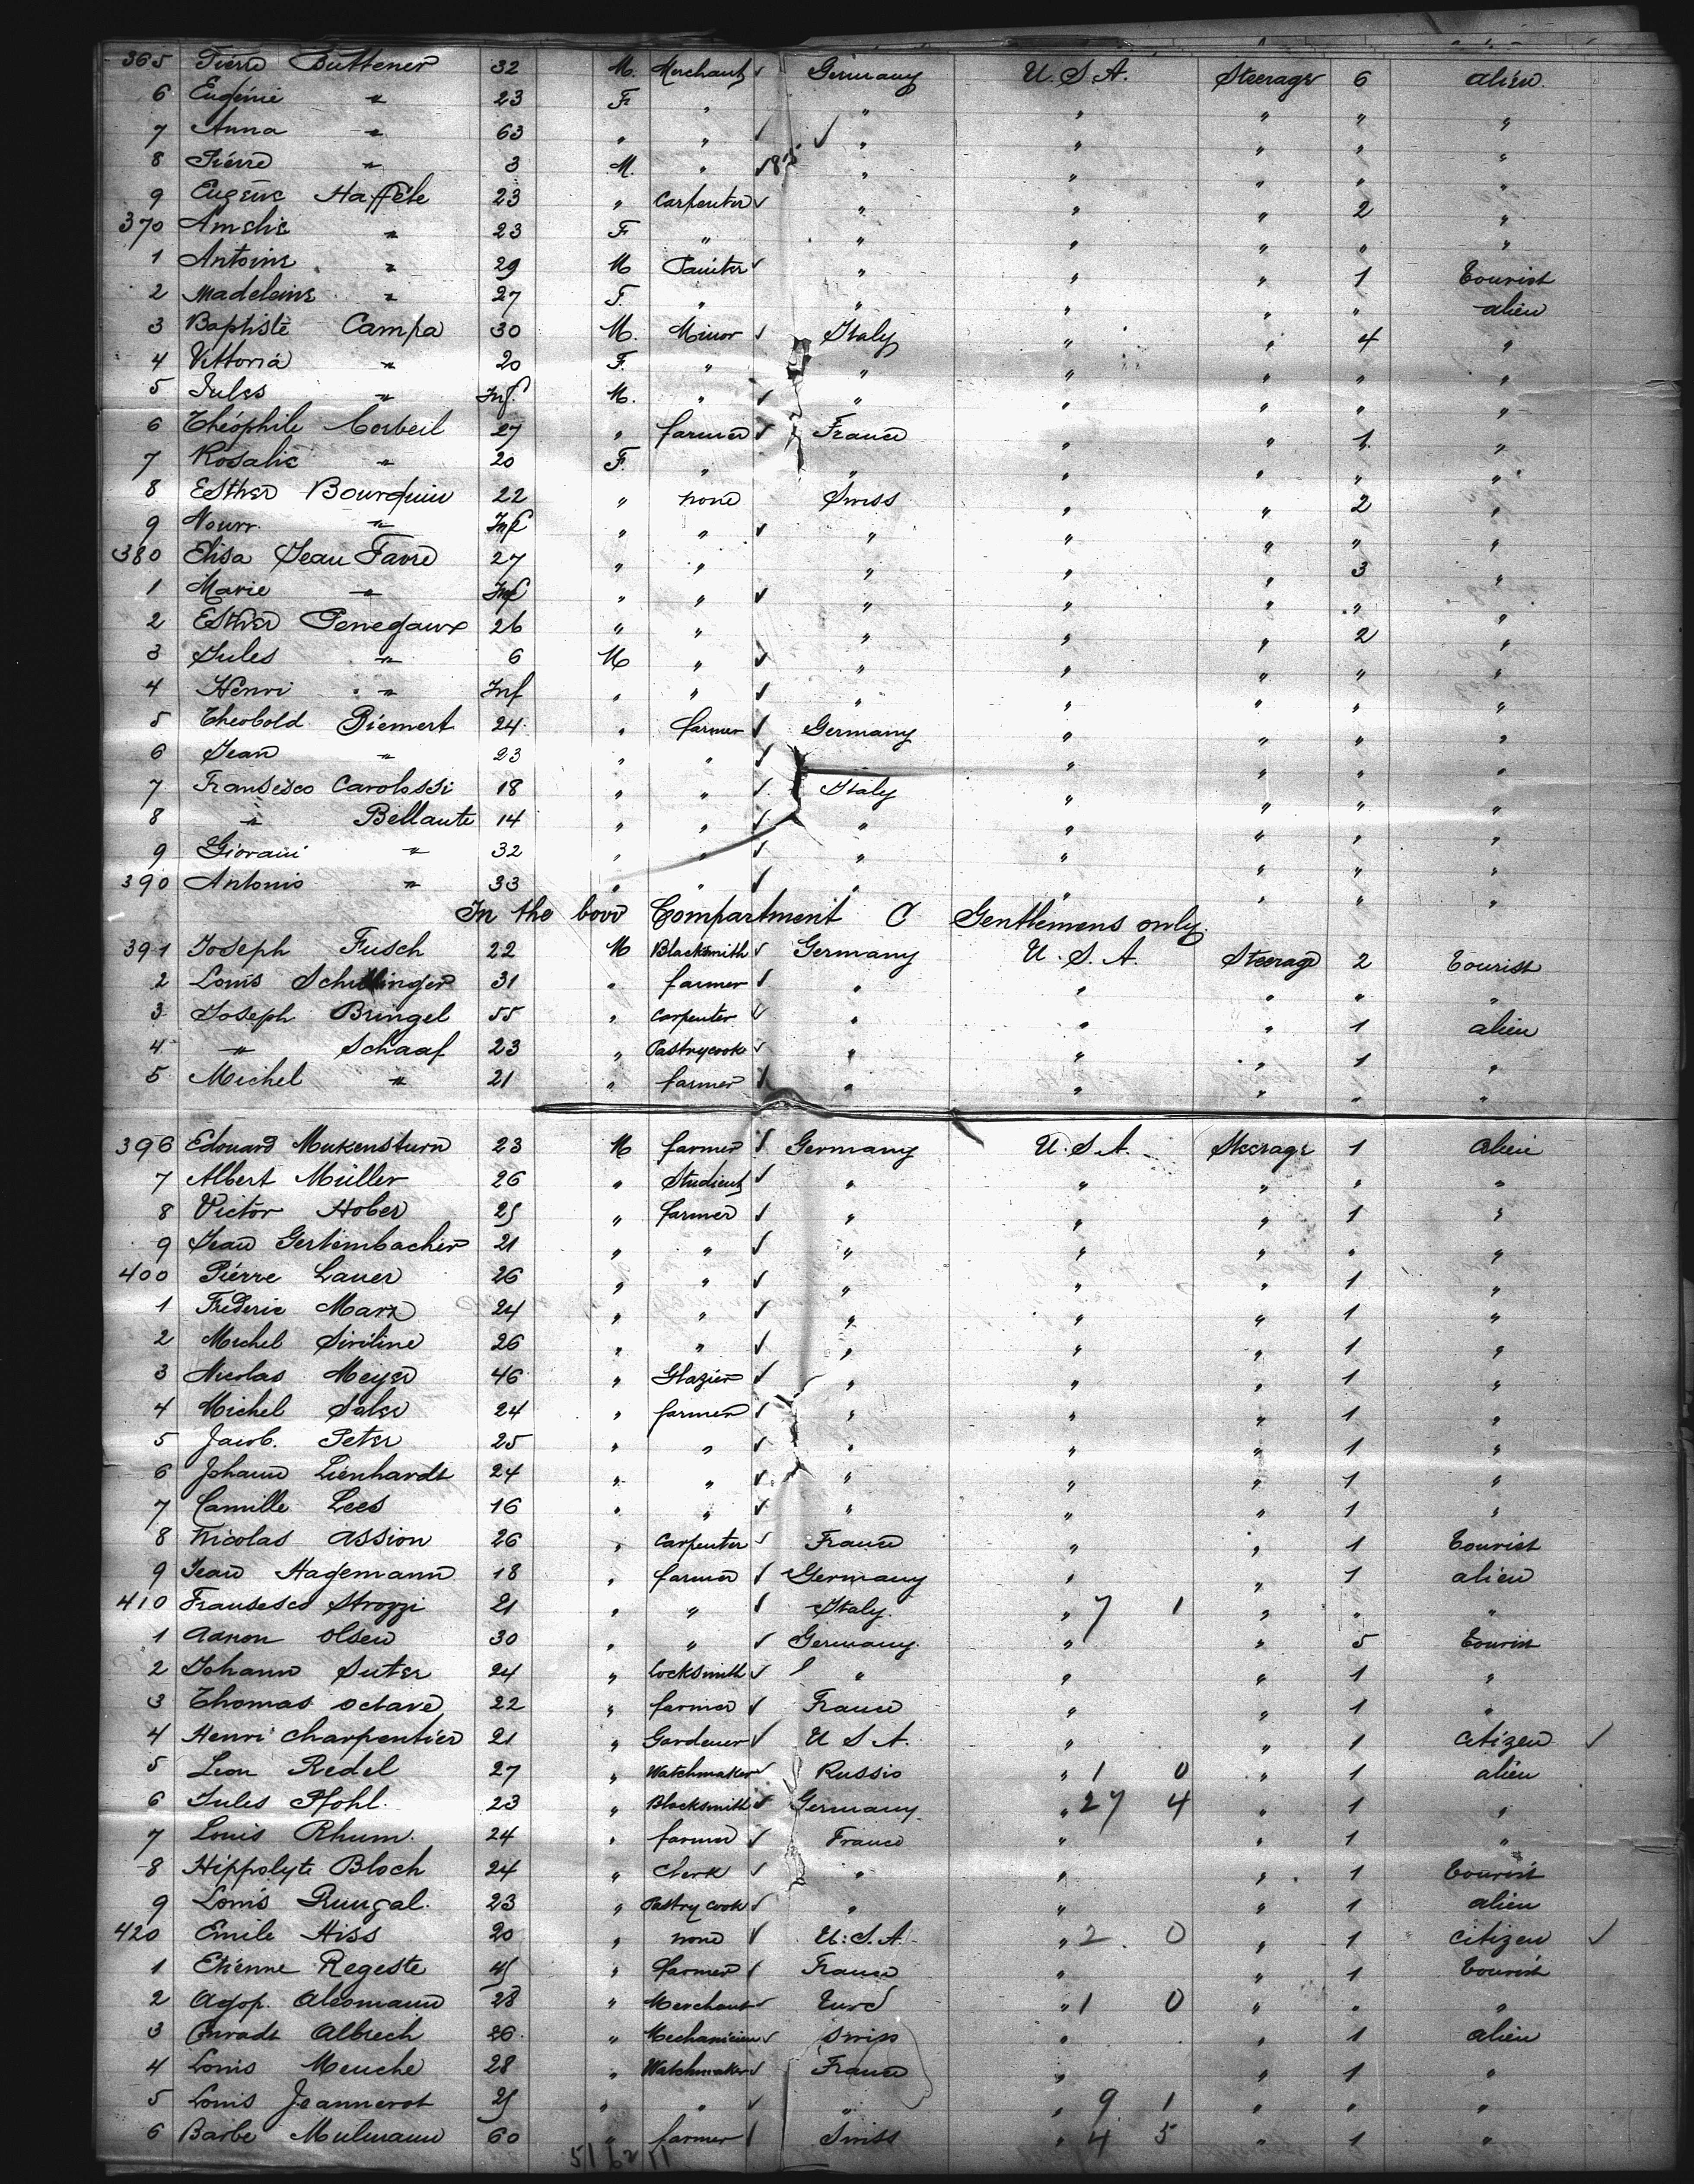 365 Pierre Buttener 32 M. Merchant ✓ Germany U.S.A. Steerage 6 alien.
6 Eugénie " 23 F. " " " " " "
7 Anna " 63 " " ✓ ✓ " " " " "
8 Pierre " 3 M. " ✓ " " " " "
9 Eugène Haffele 23 " Carpenter ✓ " " " 2 "
370 Amelie " 23 F " " " " " "
1 Antoine " 29 M Painter ✓ " " " 1 tourist
2 Madeleine " 27 F. " " " " " alien
3 Baptiste Campa 30 M. Minor ✓ Italy " " 4 "
4 Vittoria " 20 F. " " " " " "
5 Jules " Inf. M. " ✓ " " " " "
6 Théophile Corbeil 27 " farmer ✓ France " " 1 "
7 Rosalie " 20 F. " " " " " "
8 Esther Bourquin 22 " none Swiss " " 2 "
9 Nourr. " Inf " " ✓ " " " " "
380 Elisa Jean Favre 27 " " " " " 3 "
1 Marie " Inf " " ✓ " " " " "
2 Esther Penegaux 26 " " " " " 2 "
3 Jules " 6 M " ✓ " " " " "
4 Henri " Inf " " ✓ " " " " "
5 Theobold Biemert 24 " farmer ✓ Germany " " " "
6 Jean " 23 " " ✓ " " " "
7 Fransesco Carolossi 18 " " ✓ Italy " " " "
8 " Bellante 14 " " ✓ " " " " "
9 Giovani " 32 " " ✓ " " " " "
390 Antonio " 33 " " ✓ " " " " "
In the bow Compartment C Gentlemens only.
391 Joseph Fusch 22 M Blacksmith ✓ Germany U.S.A. Steerage 2 tourist
2 Louis Schillinger 31 " farmer ✓ " " " " "
3 Joseph Bringel 55 " Carpenter ✓ " " " 1 alien
4 " Schaaf 23 " Pastrycook ✓ " " " 1 "
5 Michel " 21 " farmer ✓ " " " " "
396 Edouard Mukensturn 23 M farmer ✓ Germany U.S.A. Steerage 1 alien
7 Albert Müller 26 " Studient ✓ " " " " "
8 Victor Hober 25 " farmer ✓ " " " 1 "
9 Jean Gertembacher 21 " " ✓ " " " " "
400 Piérre Lauer 26 " " ✓ " " " 1 "
1 Fréderic Marx 24 " " ✓ " " " 1 "
2 Michel Siriline 26 " " ✓ " " " 1 "
3 Nicolas Meyer 46 " Glazier ✓ " " " 1 "
4 Michel Soler 24 " farmer ✓ " " " 1 "
5 Jacob. Peter 25 " " ✓ " " " 1 "
6 Johann Lienhardt 24 " " ✓ " " " 1 "
7 Camille Lees 16 " " ✓ " " " 1 "
8 Nicolas Assion 26 " Carpenter ✓ France " " 1 tourist
9 Jean Hagemann 18 " farmer ✓ Germany " " 1 alien
410 Fransesco Strozzi 21 " " ✓ Italy. " 7 1 " " "
1 Aaron Olsen 30 " " ✓ Germany. " " 5 tourist
2 Johann Suter 24 " locksmith ✓ " " " 1 "
3 Thomas Octave 22 " farmer ✓ France " " 1 "
4 Henri Charpentier 21 " Gardener ✓ U S A. " " 1 Citizen ✓
5 Leon Redel 27 " Watchmaker ✓ Russia " 1 0 " 1 alien
6 Jules Pfohl. 23 " Blacksmith ✓ Germany " 27 4 " 1 "
7 Louis Rhum. 24 " farmer ✓ France " " 1 "
8 Hippolyte Bloch 24 " Clerk ✓ " " " 1 tourist
9 Louis Rungal. 23 " Pastry cook ✓ " " " 1 alien
420 Emile Hiss 20 " none ✓ U.S.A. " 2 0 " 1 Citizen ✓
1 Etienne Regeste 45 " farmer ✓ France " " 1 tourist
2 Agop. Alesmann 28 " Merchant ✓ Turd " 1 0 " " "
3 Conradt Albrech 26 " Mechanicien ✓ Swiss " " 1 alien
4 Louis Meuche 28 " Watchmaker ✓ France " " 1 "
5 Louis Jeannerot 25 " " ✓ " " 9 1 " " "
6 Barbe Mulmann 60 " farmer ✓ Swiss " 4 5 " 1 "